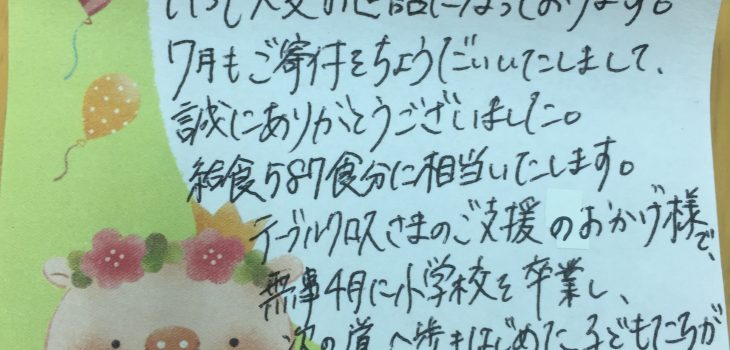 いつも大変お世話になっております。
7月もご寄付をちょうだいいたしまして、
誠にありがとうございました。
給食587食分に相当いたします。
テーブルクロスさまのご支援のおかげ様で、
無事4月に小学校を卒業し、
次の道へ歩きはじめた子どもたちが